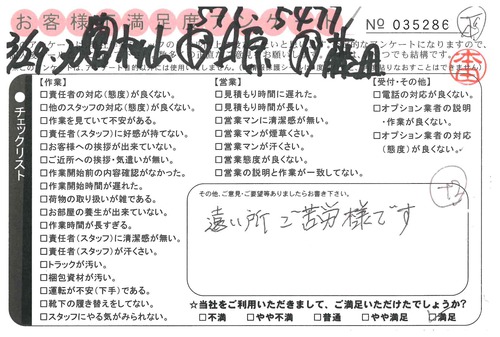 お客様満足度アンケート
5月 5477
No 035286
チェックリスト
【作業】
□責任者の対応(態度)が良くない。
□他のスタッフの対応(態度)が良くない。
□作業を見ていて不安がある。
□責任者(スタッフ)に好感が持てない。
□お客様への挨拶が出来ていない。
□ご近所への挨拶・気遣いが無い。
□作業開始前の内容確認がなかった。
□作業開始時間が遅れた。
□荷物の取り扱いが雑である。
□お部屋の養生が出来ていない。
□作業時間が長すぎる。
□責任者(スタッフ)に清潔感が無い。
□責任者(スタッフ)が汗くさい。
□トラックが汚い。
□梱包資材が汚い。
□運転が不安(下手)である。
□靴下の履き替えをしてない。
□スタッフにやる気がみられない。
【営業】
□見積もり時間に遅れた。
□見積もり時間が長い。
□営業マンに清潔感が無い。
□営業マンが煙草くさい。
□営業マンが汗くさい。
□営業態度が良くない。
□営業の説明と作業が一致してない。
【受付・その他】
□電話の対応が良くない。
□オプション業者の説明
・作業が良くない。
□オプション業者の対応
(態度)が良くない。
その他、ご意見・ご要望等ありましたらお書き下さい。
遠い所ご苦労様です
☆当社をご利用いただきまして、ご満足いただけたでしょうか?
□不満 □やや不満 □普通 □やや満足 □満足